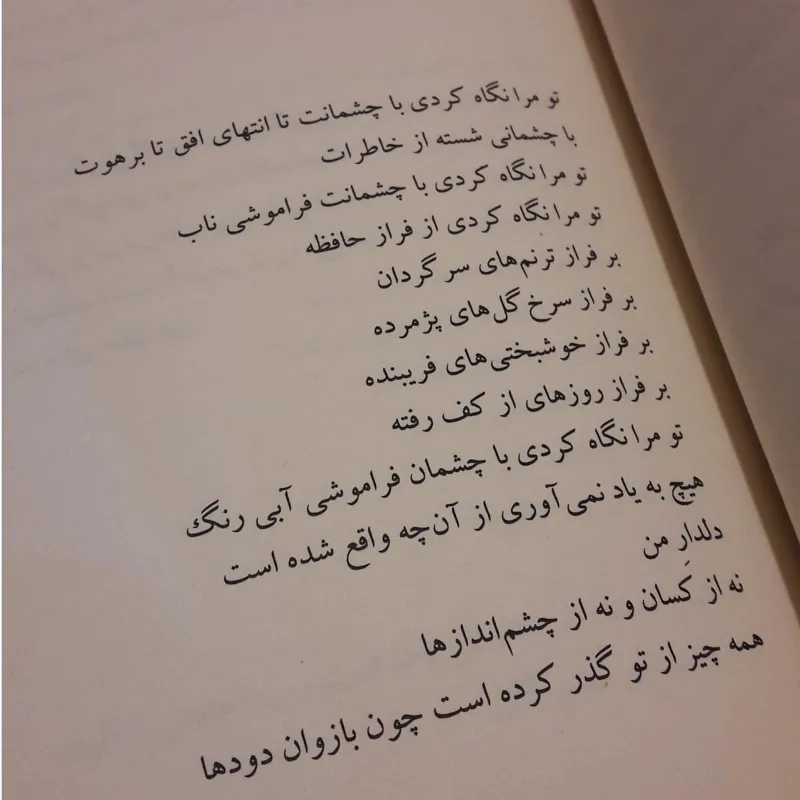 تو مرا نگاه کردی با چشمانت تا انتهای افق تا برهوت
با چشمانی شسته از خاطرات
تو مرا نگاه کردی با چشمانت فراموشی ناب
تو مرا نگاه کردی از فراز حافظه
بر فراز ترنم‌های سر گردان
بر فراز سرخ گل‌های پژمرده
بر فراز خوشبختی‌های فریبنده
بر فراز روزهای از کف رفته
تو مرا نگاه کردی با چشمان فراموشی آبی رنگ
هیچ به یاد نمی‌آوری از آن‌چه واقع شده است
دلدارِ من
نه از کَسان و نه از چشم‌اندازها
همه چیز از تو گذر کرده است چون بازوان دودها